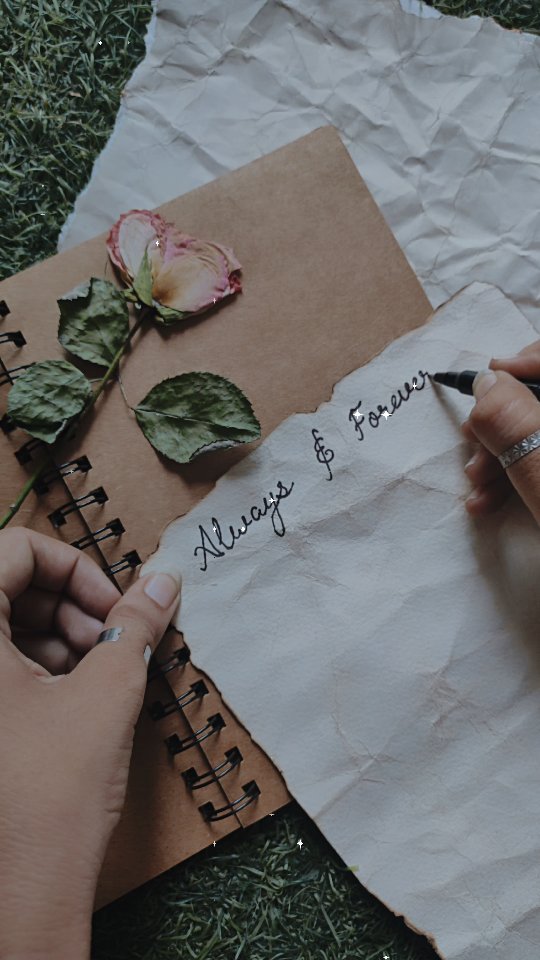 Always & Forever